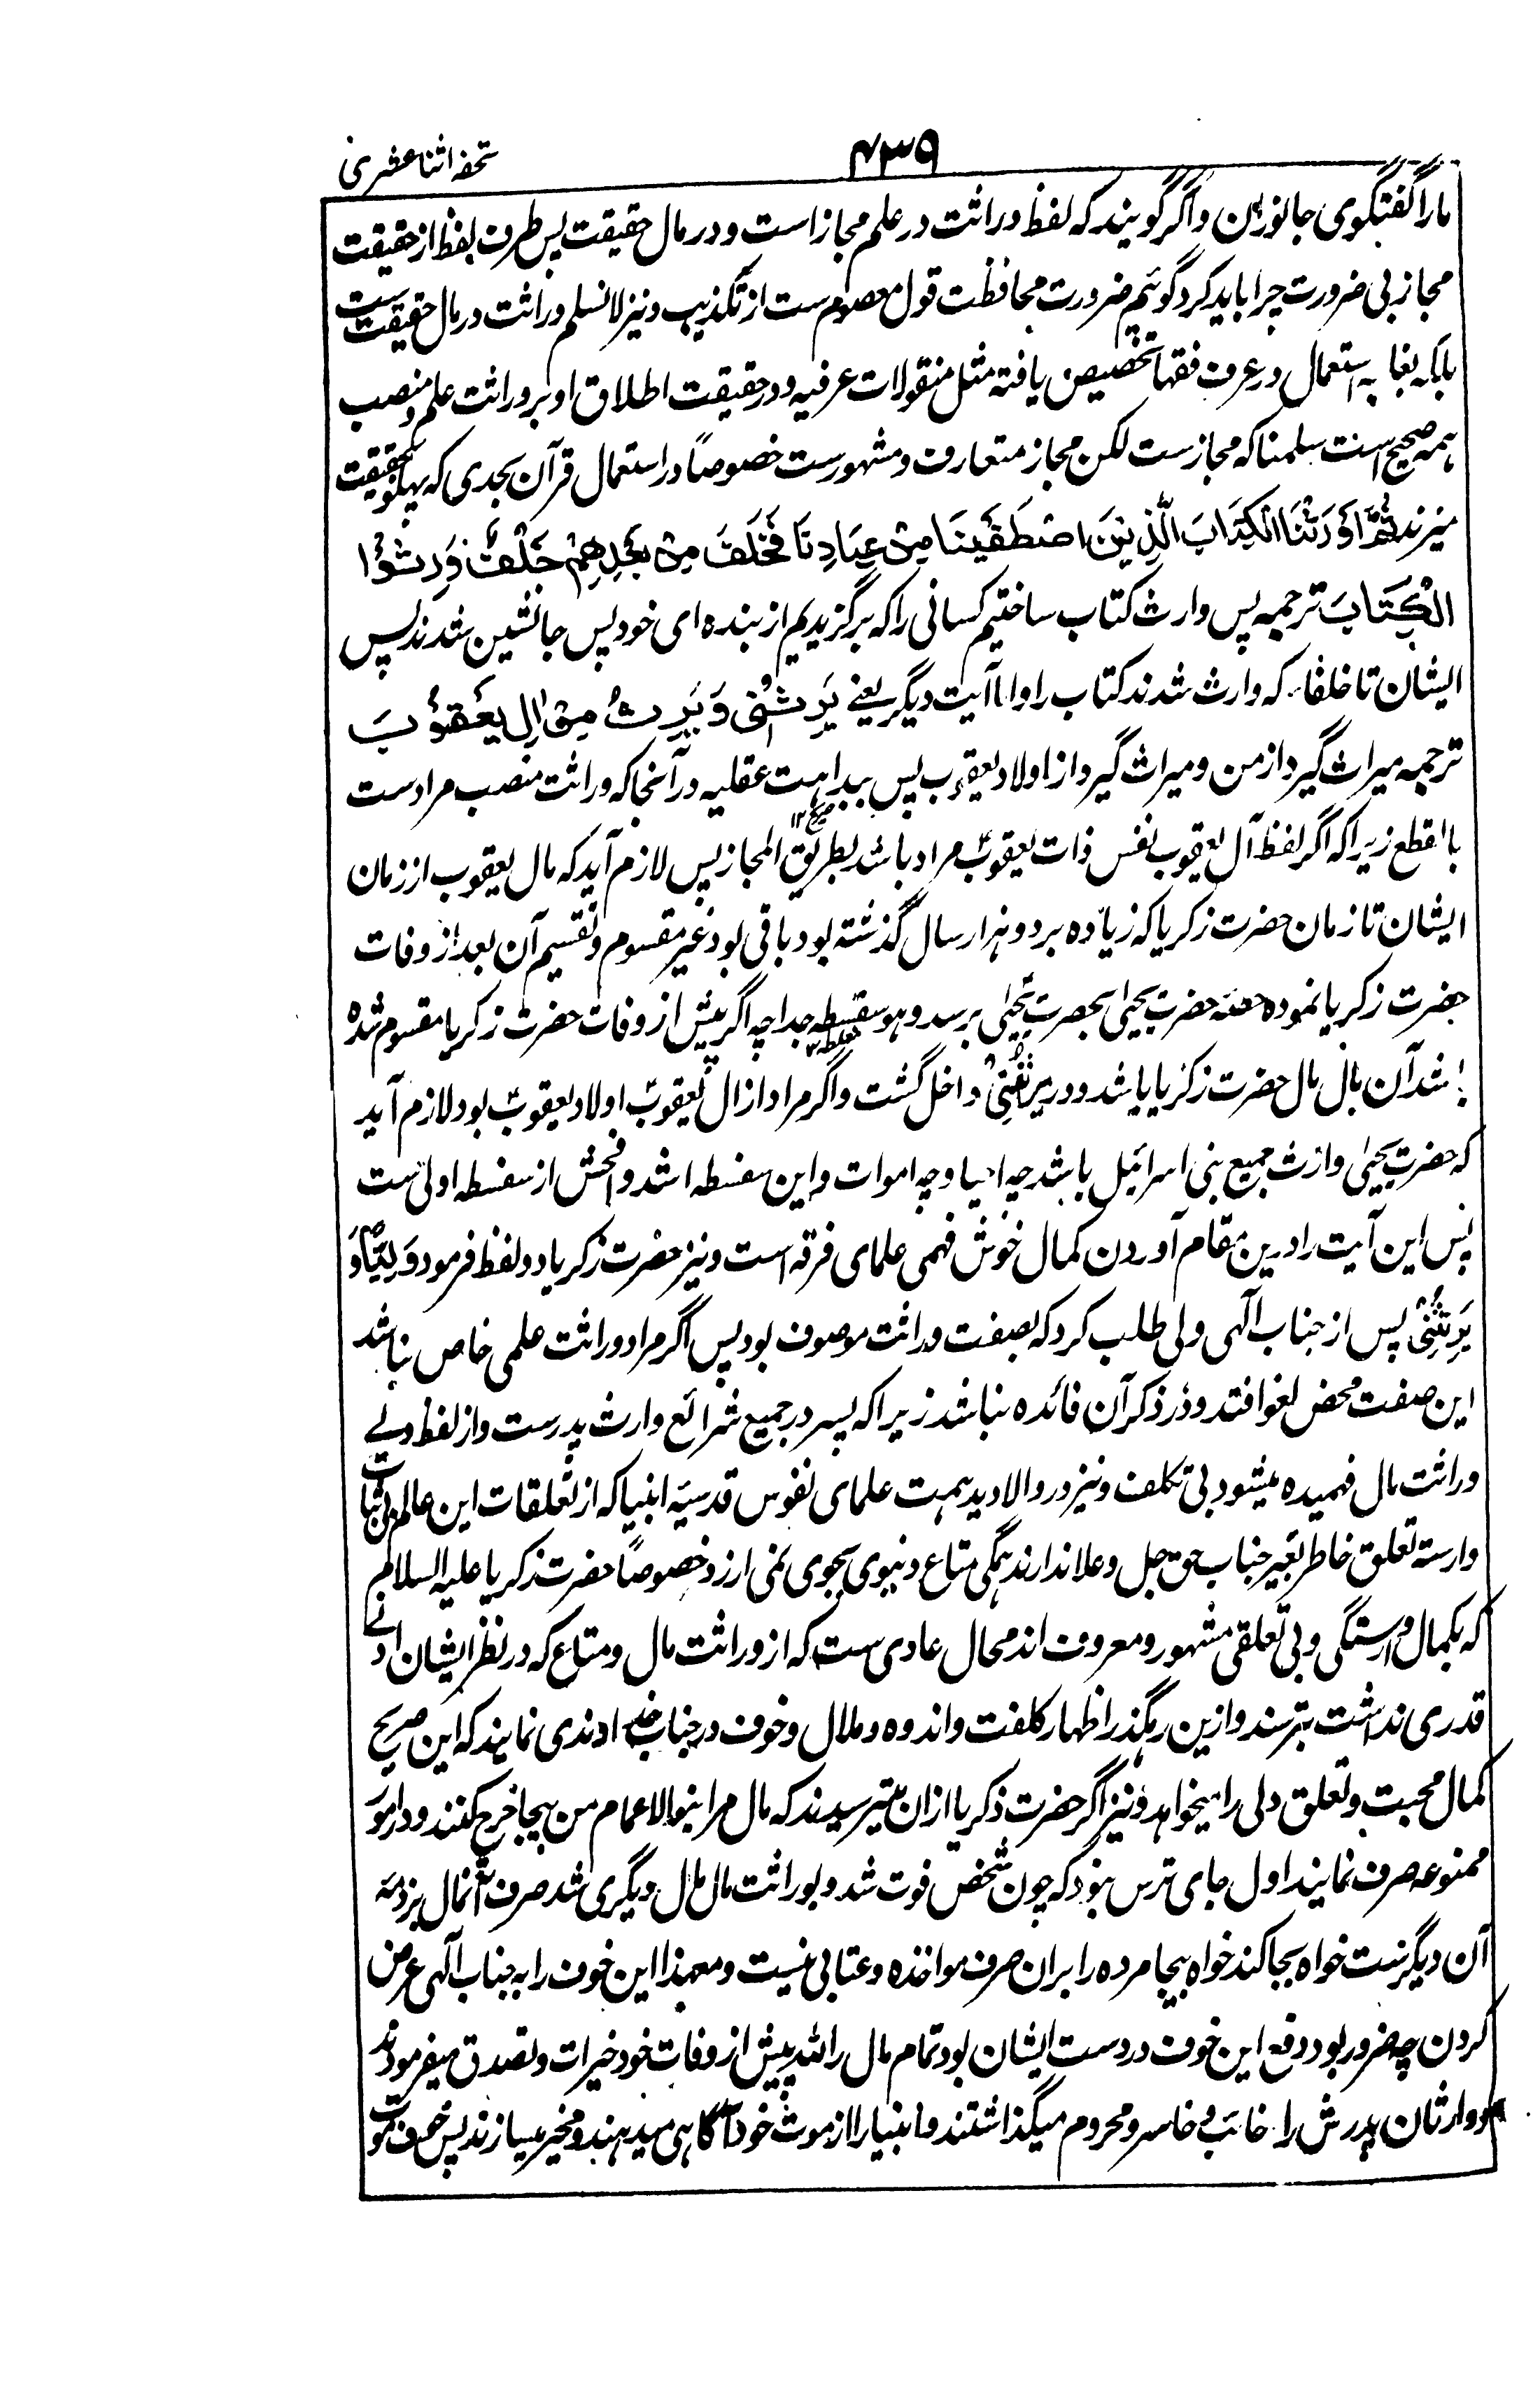 ۴۳۹
تحفه اثنا عشری
ما را گفتگوی جانوران و اگر گویند که لفظ وراثت در علم مجاز است و در مال حقیقت پس صرف لفظ از حقیقت
مجاز بی ضرورت چرا باید کرد گوئیم ضرورت محافظت قول معصوم ست از تکذیب و نیز لانسلم وراثت در مال حقیقت ست
بلکه بغلبه استعمال در عرف فقها تخصیص یافته مثل منقولات عرفیه و در حقیقت اطلاق او بر وراثت علم و منصب
همه صحیح است سلمنا که مجازست لکن مجاز متعارف و مشهورست خصوصاً در استعمال قرآن بحدی که پهلو بحقیقت
میزند ثُمَّ اَوْرَثْنَا الْكِتَابَ الَّذِيْنَ اصْطَفَيْنَا مِنْ عِبَادِنَا فَخَلَفَ مِنْ بَعْدِهِمْ خَلْفٌ وَرِثُوا
الْكِتَابَ ترجمه پس وارث کتاب ساختیم کسانی را که برگزیدیم از بنده ای خود پس جانشین شدند پس
ایشان نا خلفان که وارث شدند کتاب را و اما آیت دیگر یعنے يَرِثُنِیْ وَيَرِثُ مِنْ اٰلِ يَعْقُوْبَ
ترجمه میراث گیرد از من و میراث گیرد از اولاد یعقوب پس ببداهت عقلیه در آنجا که وراثت منصب مرادست
بالقطع زیرا که اگر لفظ آل یعقوب نفس ذات یعقوبؑ مراد باشد بطریق المجاز پس لازم آید که مال یعقوب از زمان
ایشان تا زمان حضرت زکریا که زیاده بر دو هزار سال گذشته بود باقی بود غیر مقسوم و تقسیم آن بعد از وفات
حضرت زکریا نموده حصه حضرت یحیی بحضرت یحیی برسد و هو سفسطه جدا چه اگر پیش از وفات حضرت زکریا مقسوم شده
باشد آن مال مال حضرت زکریا باشد و در يَرِثُنِیْ داخل گشت و اگر مراد از ال یعقوبؑ اولاد یعقوبؑ بود لازم آید
که حضرت یحییٰ وارث جمیع بنی اسرائیل باشد چه احیا و چه اموات و این سفسطه اشد و افحش از سفسطه اولی ست
پس این آیت را درین مقام آوردن کمال خوش فهمی علمای فرقه است و نیز حضرت زکریا دو لفظ فرمود وَلِيًّا وَ
يَرِثُنِیْ پس از جناب الٓهی ولی طلب کرد که بصفت وراثت موصوف بود پس اگر مراد وراثت علمی خاص نباشد
این صفت محض لغو افتد و در ذکر آن فائده نباشد زیرا که پسر در جمیع شرائع وارث پدرست و از لفظ ولے
وراثت مال فهمیده میشود بی تکلف و نیز در والا دید همت علمای نفوس قدسیه انبیا که از تعلقات این عالم بی ثبات
وارسته تعلق خاطر بغیر جناب حق جل و علا ندارند همگی متاع دنیوی بجوی نمی ارزد خصوصاً حضرت زکریا علیه السلام
که بکمال وارستگی و بی تعلقی مشهور و معروف اند محال عادی ست که از وراثت مال و متاع که در نظر ایشان ادنے
قدری نداشت بترسند و ازین رهگذر اظهار کلفت و اندوه و ملال و خوف در جناب خداوندی نمایند که این صریح
کمال محبت و تعلق دلی را میخواهد و نیز اگر حضرت ذکریا ازان میترسیدند که مال مرا بنوالاعمام من بیجا خرج کنند و در امور
ممنوعه صرف نمایند اول جای ترس نبود که چون شخص فوت شد و بوراثت مال مال دیگری شد صرف آنمال بر ذمه
آن دیگرست خواه بجا کند خواه بیجا مرده را بران صرف مواخذه و عتابی نیست و معهذا این خوف را به جناب الٓهی عرض
کردن چه ضرور بود دفع این خوف در دست ایشان بود تمام مال را لله پیش از وفات خود خیرات و تصدق میفرمودند
و وارثان را خائب و خاسر و محروم میگذاشتند و انبیا را از موت خود آگاهی میدهند و مخیر میسازند پس خوف موت